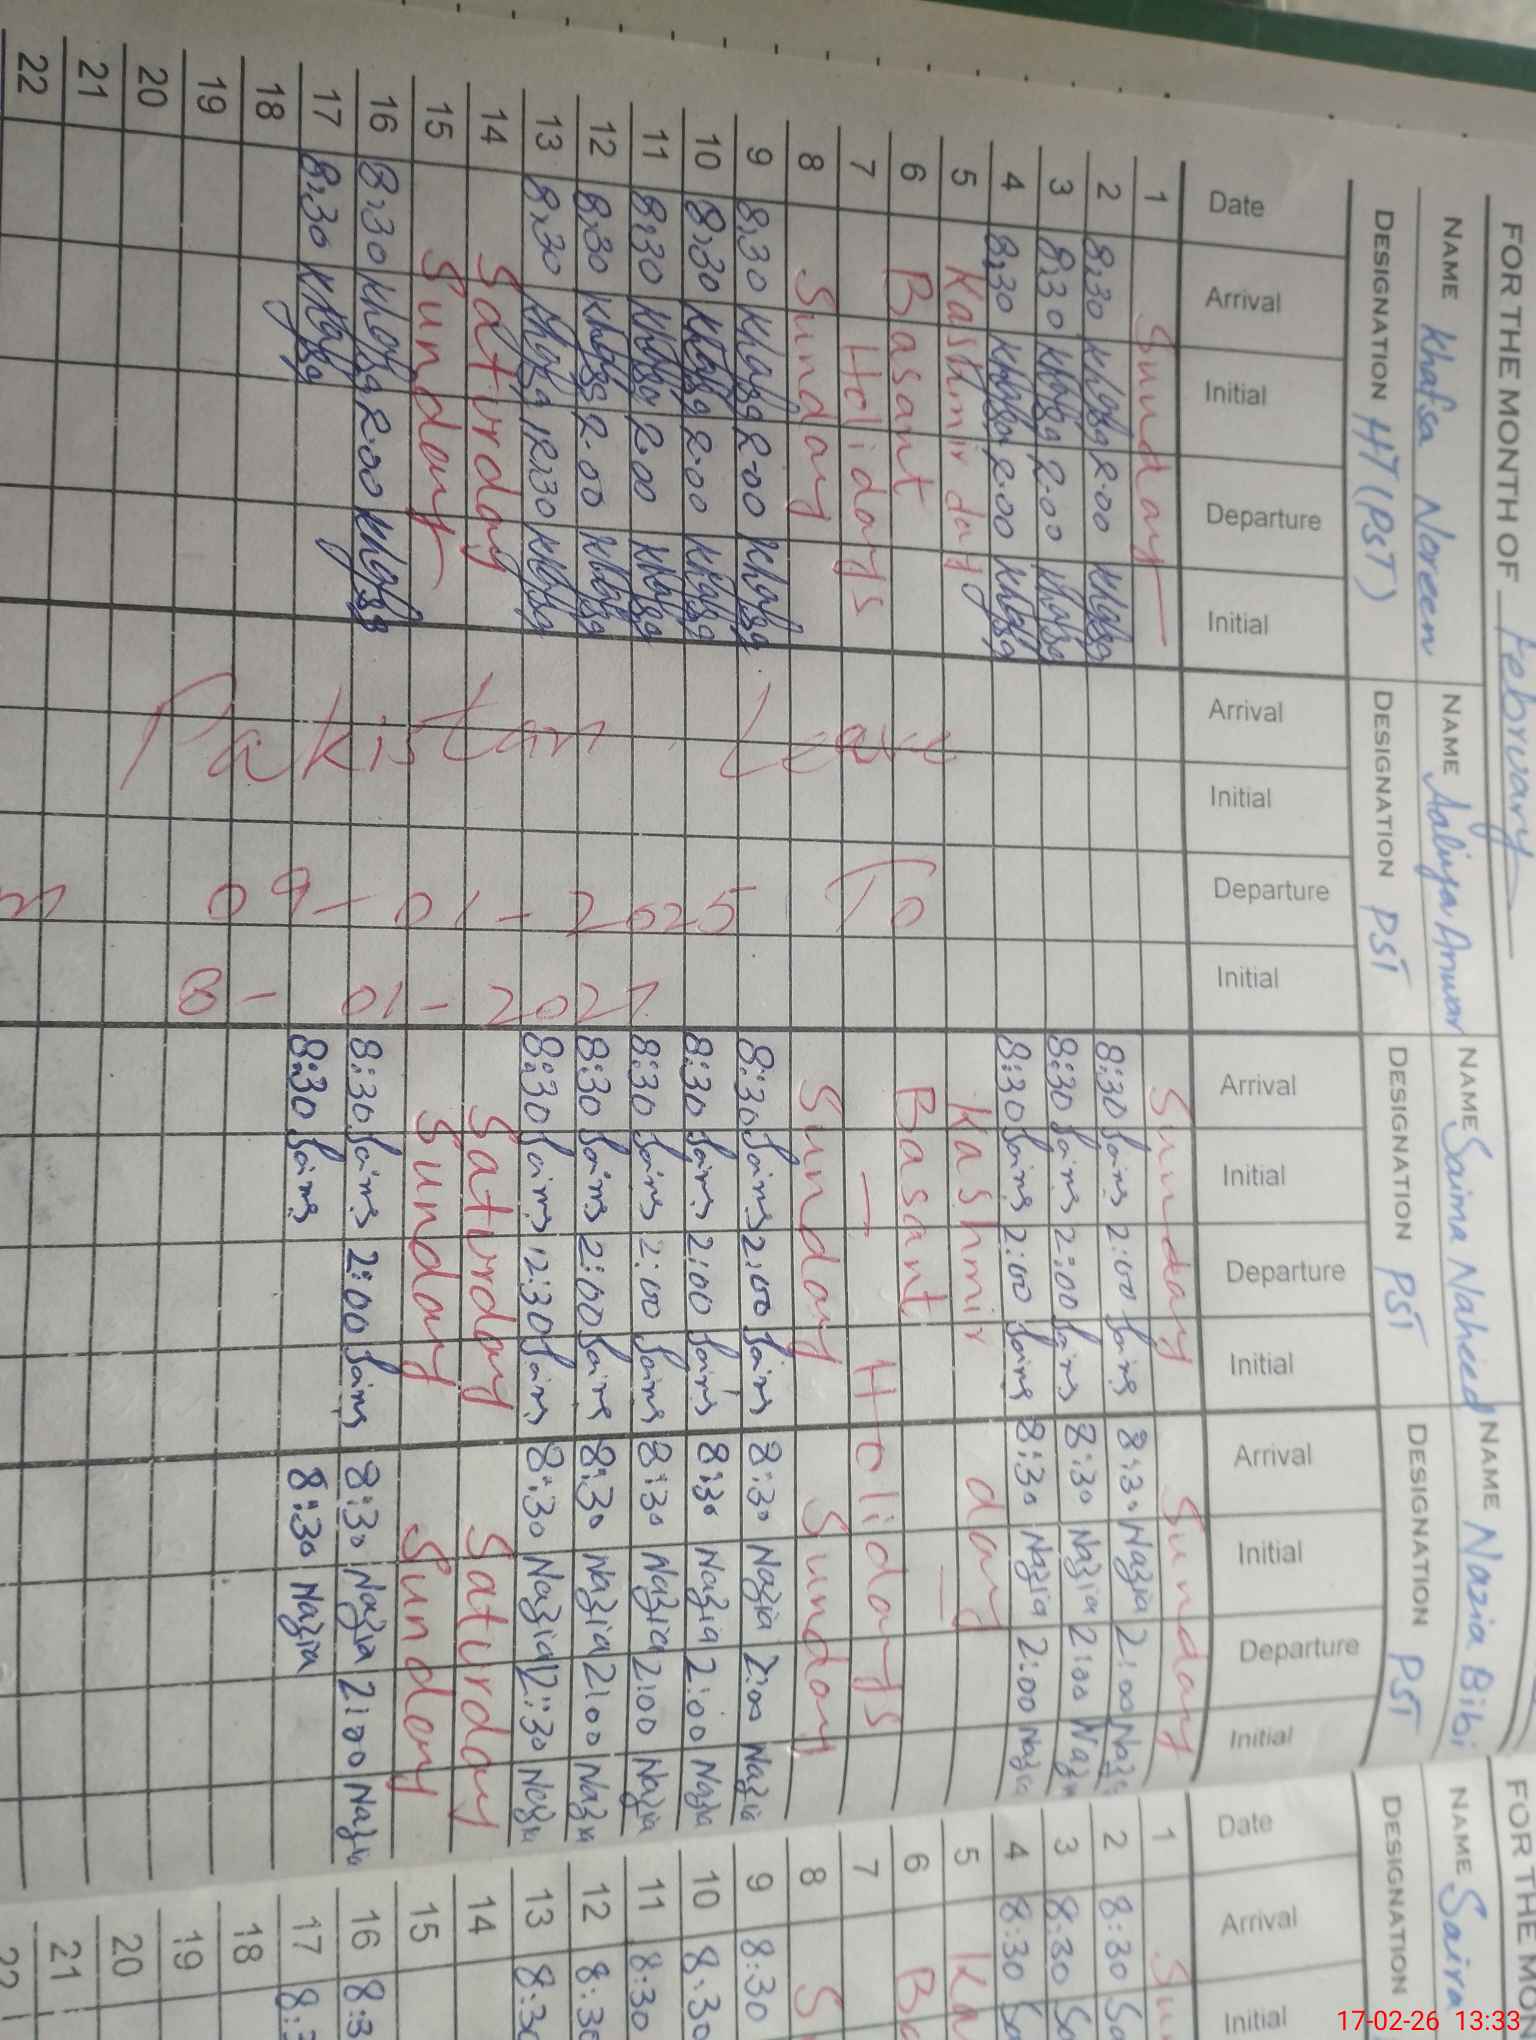 FOR THE MONTH OF February
NAME Khafsa Noreen NAME Aaliya Anwar NAME Saima Naheed NAME Nazia Bibi
DESIGNATION HT (PST) DESIGNATION PST DESIGNATION PST DESIGNATION PST
Date Arrival Initial Departure Initial Arrival Initial Departure Initial Arrival Initial Departure Initial Arrival Initial Departure Initial
1 Sunday Sunday Sunday
2 8:30 Khafsa 2.00 Khafsa 8:30 Saima 2:00 Saima 8:30 Nazia 2:00 Nazia
3 8:30 Khafsa 2.00 Khafsa 8:30 Saima 2:00 Saima 8:30 Nazia 2:00 Nazia
4 8:30 Khafsa 2.00 Khafsa 8:30 Saima 2:00 Saima 8:30 Nazia 2:00 Nazia
5 Kashmir day Kashmir day
6 Basant Basant —
7 Holidays — Holidays
8 Sunday Sunday Sunday
9 8:30 Khafsa 2.00 Khafsa 8:30 Saima 2:00 Saima 8:30 Nazia 2:00 Nazia
10 8:30 Khafsa 2.00 Khafsa 8:30 Saima 2:00 Saima 8:30 Nazia 2:00 Nazia
11 8:30 Khafsa 2.00 Khafsa 8:30 Saima 2:00 Saima 8:30 Nazia 2:00 Nazia
12 8:30 Khafsa 2.00 Khafsa 8:30 Saima 2:00 Saima 8:30 Nazia 2:00 Nazia
13 8:30 Khafsa 12:30 Khafsa 8:30 Saima 12:30 Saima 8:30 Nazia 12:30 Nazia
14 Saturday Saturday Saturday
15 Sunday Sunday Sunday
16 8:30 Khafsa 2.00 Khafsa 8:30 Saima 2:00 Saima 8:30 Nazia 2:00 Nazia
17 8:30 Khafsa 8:30 Saima 8:30 Nazia
18
19
20
21
22
Pakistan Leave
09-01-2025 To
8-01-2027
NAME Saira
DESIGNATION
Date Arrival Initial
1
2 8:30
3 8:30
4 8:30
5
6
7
8
9 8:30
10 8:30
11 8:30
12 8:30
13 8:30
14
15
16
17
18
19
20
21
22
17-02-26 13:33